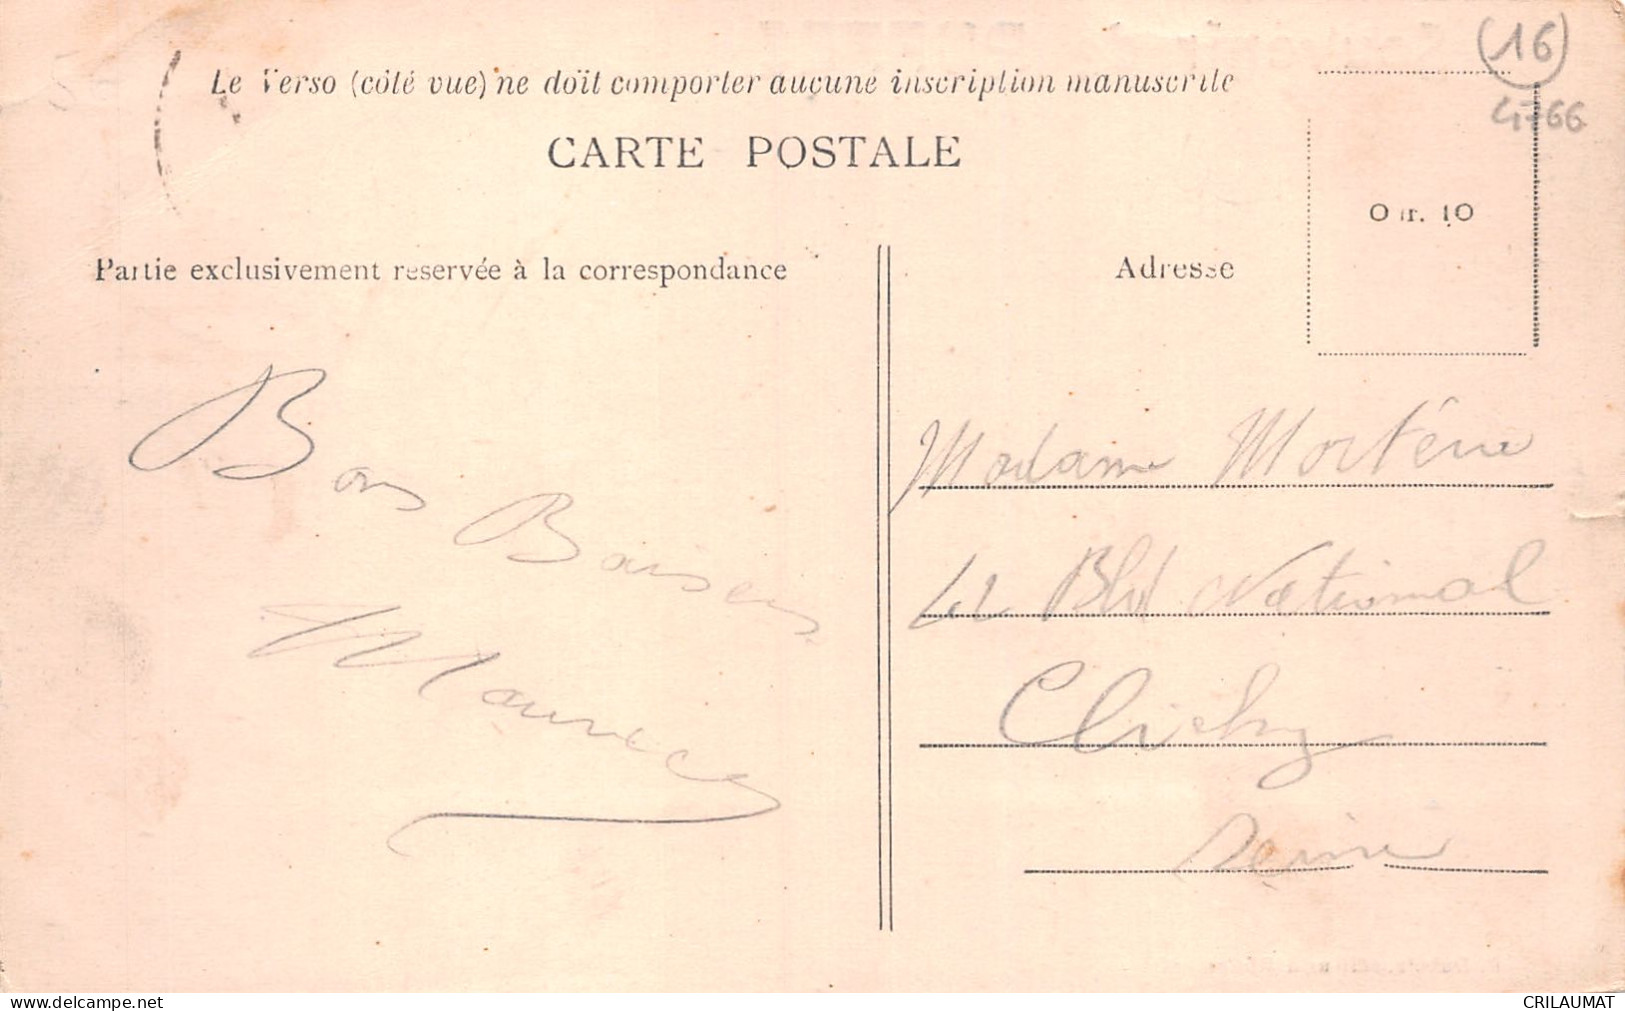 (16)
4766
Le Verso (côté vue) ne doit comporter aucune inscription manuscrite
CARTE POSTALE
0 fr. 10
Partie exclusivement reservée à la correspondance
Adresse
Bons Baisers
Maurice
Madame
Blvd National
Clichy
Seine
www.delcampe.net
CRILAUMAT